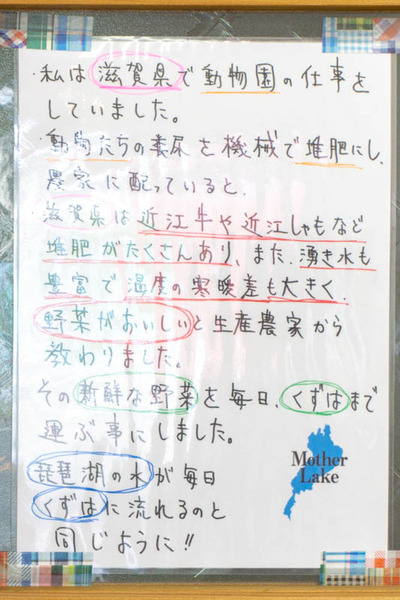 ・私は滋賀県で動物園の仕事を
していました。
・動物たちの糞尿を機械で堆肥にし、
農家に配っていると、
・滋賀県は近江牛や近江しゃもなど
堆肥がたくさんあり、また、湧き水も
豊富で温度の寒暖差も大きく、
野菜がおいしいと生産農家から
教わりました。
その新鮮な野菜を毎日、くずはまで
運ぶ事にしました。
琵琶湖の水が毎日
くずはに流れるのと
同じように!!
Mother
Lake